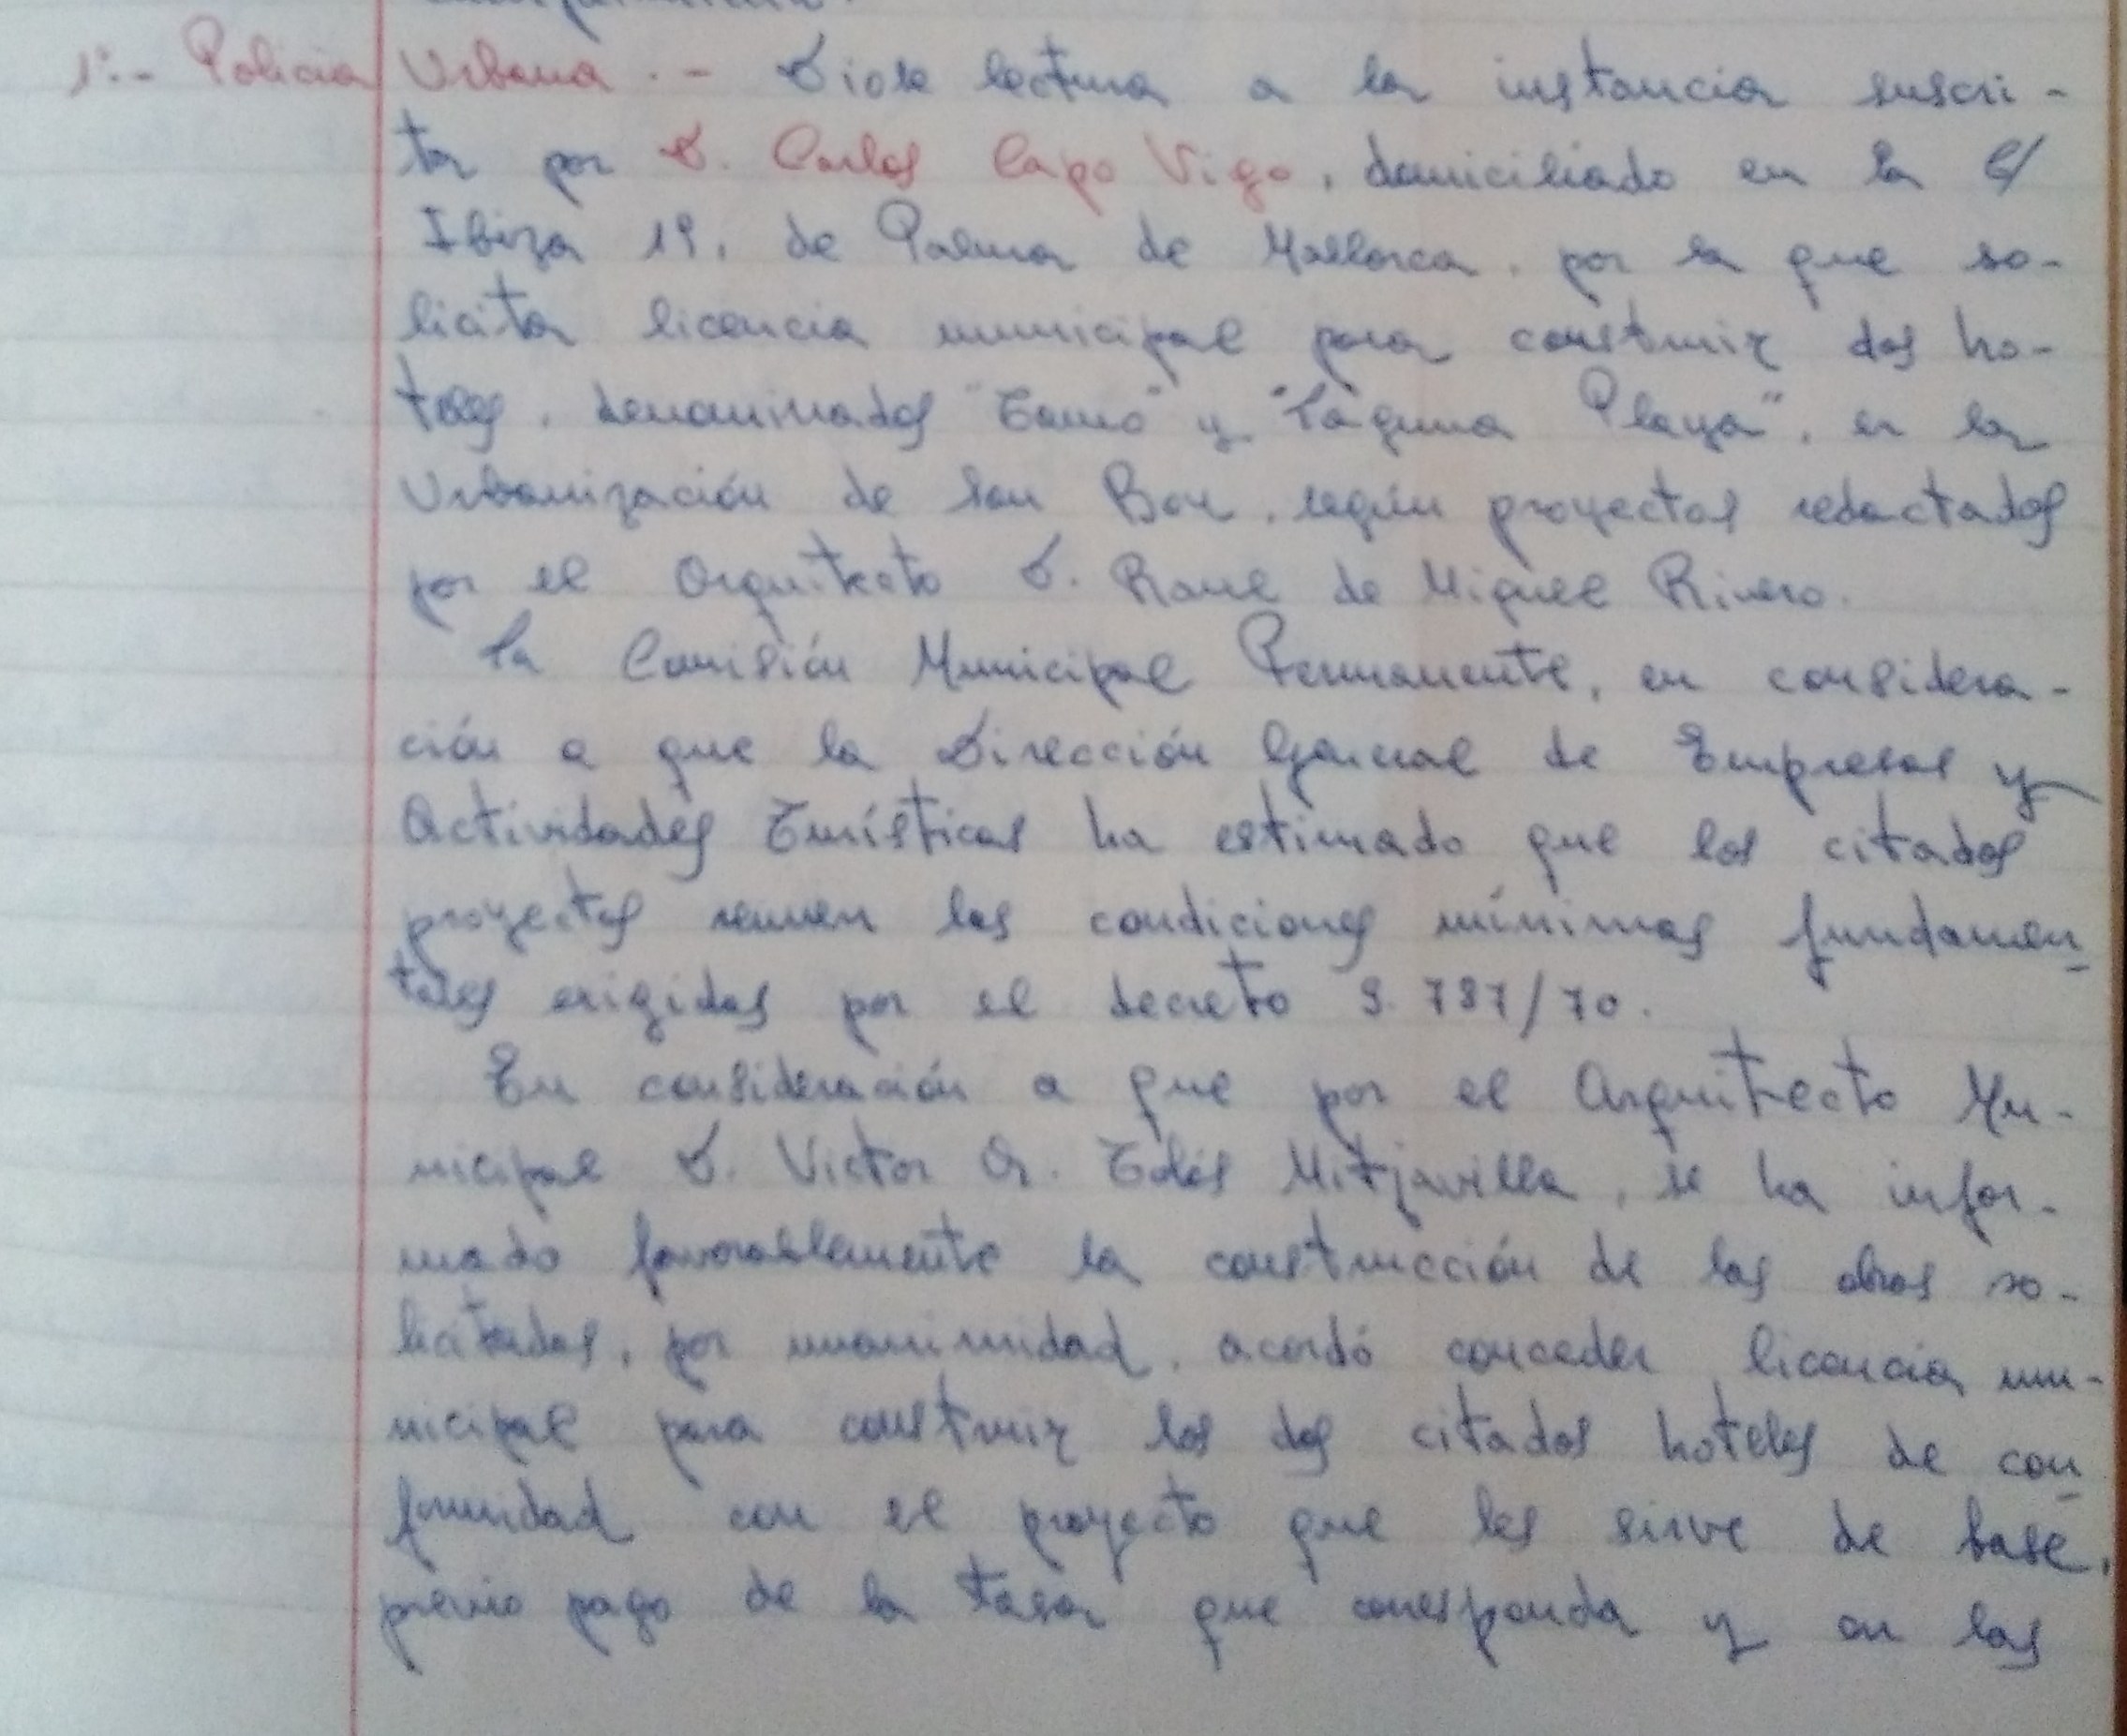 1º.- Policia Urbana.- Diose lectura a la instancia suscri-
ta por D. Carlos Capo Vigo, domiciliado en la C/
Ibiza 19, de Palma de Mallorca, por la que so-
licita licencia municipal para construir dos ho-
teles, denominados "Tamo" y "Laguna Playa", en la
Urbanización de San Bou, según proyectos redactados
por el Arquitecto D. Raul de Miguel Rivero.
La Comisión Municipal Permanente, en considera-
ción a que la Dirección General de Empresas y
Actividades Turísticas ha estimado que los citados
proyectos reunen las condiciones mínimas fundamen-
tales exigidas por el decreto 3.787/70.
En consideración a que por el Arquitecto Mu-
nicipal D. Victor A. Tolós Mitjavilla, se ha infor-
mado favorablemente la construcción de las obras so-
licitadas, por unanimidad, acordó conceder licencia mu-
nicipal para construir los dos citados hoteles de con-
formidad con el proyecto que les sirve de base,
previo pago de la tasa que corresponda y en las